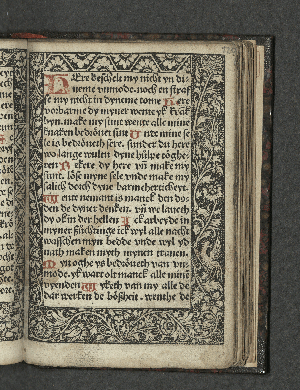 HEre beschelt my nicht yn di
neme vnmode. noch en straf
fe my nicht in dyneme torne Here
vorbarme dy myner wente yk krāk
byn. make my sunt wente alle mine
knaken bedrövet sint Unde mine se
le is bedrövet sere. sunder du here
wo lange wultu dyne hülpe toghe
ren Kere dy here vñ make my
sunt. löse myne sele vnde make my
salich dorch dyne barmherticheyt.
Wente nemant is manck den do
den de dyner denken. vñ we lavet
dy ok in der hellen Ick arbeyde in
myner süchtinge ick wyl alle nacht
wasschen myn bedde vnde wyl yd
nath maken myth mynen tranen.
Myn oghe ys bedrövet van vn
mode. yk wart olt manck alle minē
vyenden Wyketh van my alle de
dar werken de bößheit. wenthe de